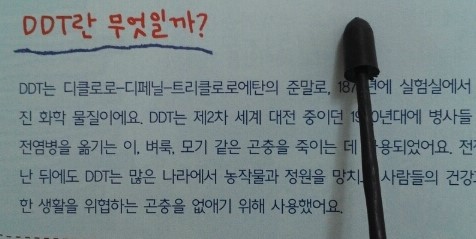 DDT란 무엇일까?
DDT는 디클로로-디페닐-트리클로로에탄의 준말로, 실험실에서
진 화학 물질이에요. DDT는 제2차 세계 대전 중이던 병사들
전염병을 옮기는 이, 벼룩, 모기 같은 곤충을 죽이는 데
난 뒤에도 DDT는 많은 나라에서 농작물과 정원을 사람들의
한 생활을 위협하는 곤충을 없애기 위해 사용했어요.